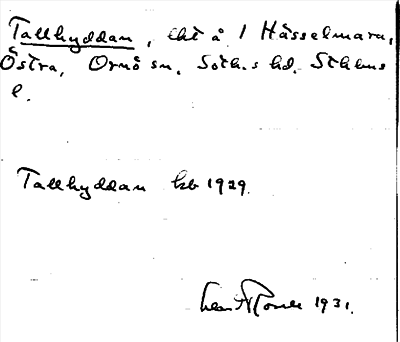 Tallhyddan, lht å 1 Hässelmara,
Östra, Ornö sn. Soth.s hd. Sthlms
l.
Tallhyddan kb 1929.
1931.